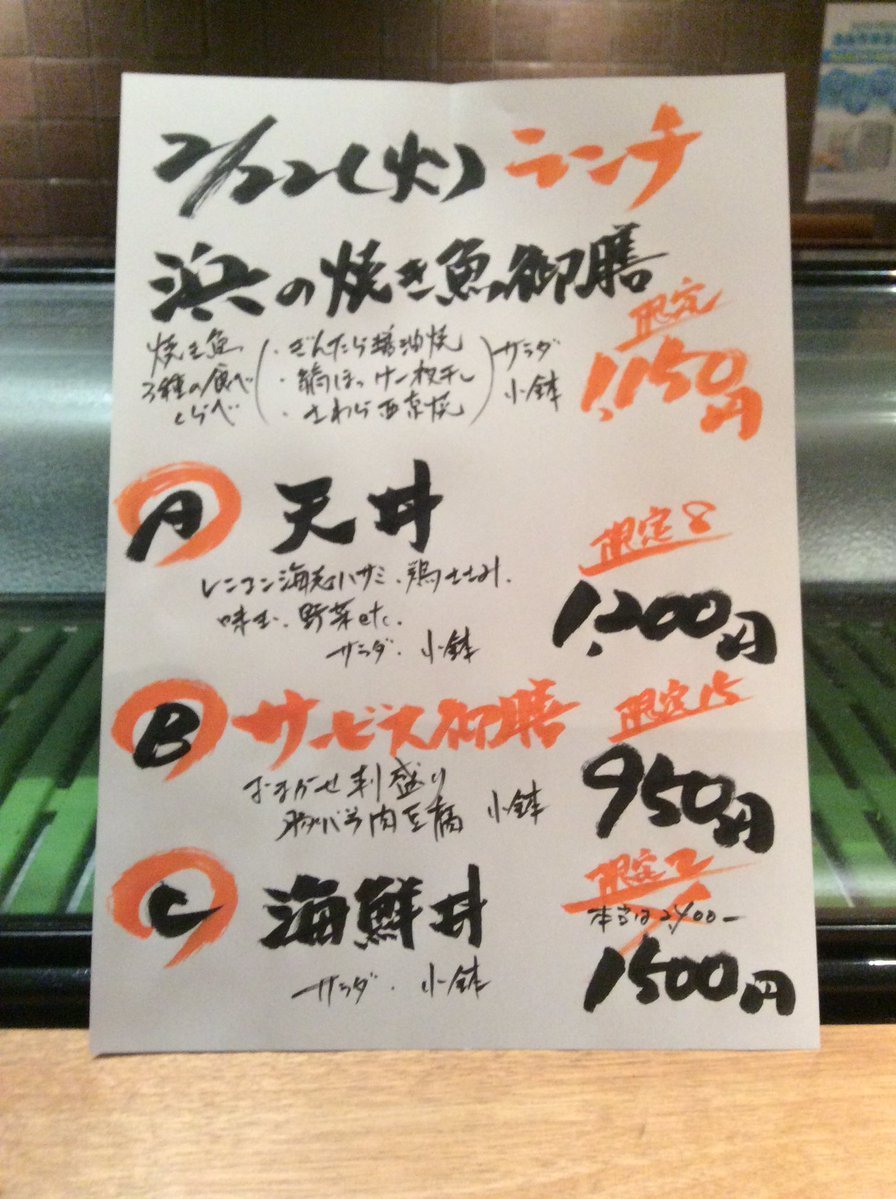 2/22(火) ランチ
浜の焼き魚御膳
限定
1,150円
焼き魚
3種の食べ
くらべ
・ぎんたら醤油焼
・縞ほっけ一枚干し
・さわら西京焼
サラダ
小鉢
A 天丼
限定8
レンコン海老ハサミ、鶏ささみ、
味玉、野菜etc.
サラダ・小鉢
1,200円
B サービス御膳
限定15
おまかせ刺盛り
豚バラ肉豆腐 小鉢
950円
C 海鮮丼
限定2
本当は2,400ー
サラダ・小鉢
1500円